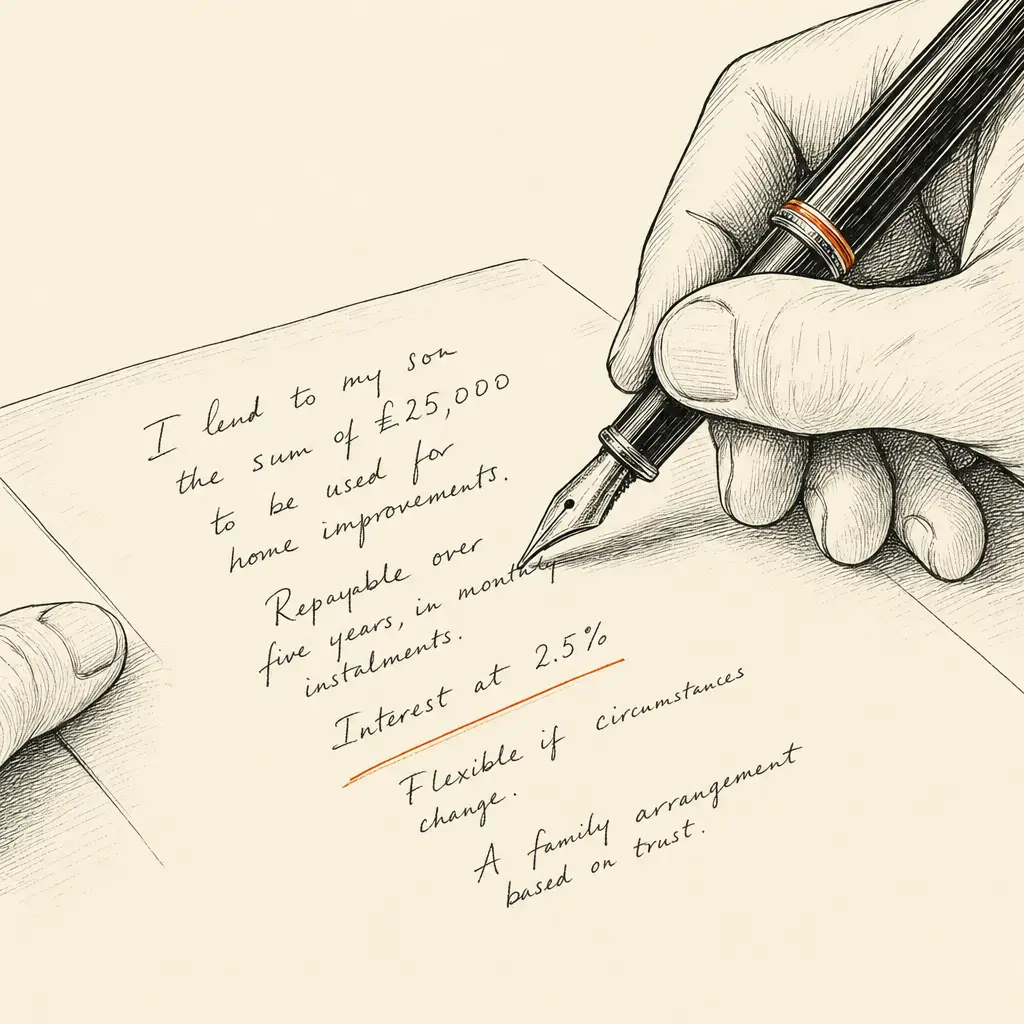 I lend to my son
the sum of £25,000
to be used for
home improvements.
Repayable over
five years, in monthly
instalments.
Interest at 2.5%
Flexible if circumstances
change.
A family arrangement
based on trust.